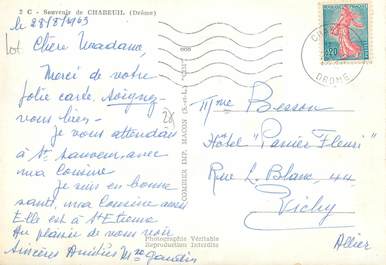 2 C - Souvenir de CHABEUIL (Drôme)
le 28/5/1963
Chère Madame,
Merci de votre
jolie carte, soignez-
vous bien -
Je vous attendrai
à St Sauveur, avec
ma Cousine
Je suis en bonne
santé, ma Cousine aussi
Elle est à St Etienne
Au plaisir de vous voir
Sincères Amitiés Mme Gaudin
COMBIER IMP. MACON (S.-et-L.)
Photographie Véritable
Reproduction Interdite
28
0,20
DROME
Mme Besson
Hôtel "Panier Fleuri"
Rue L. Blanc, 44
Vichy
Allier